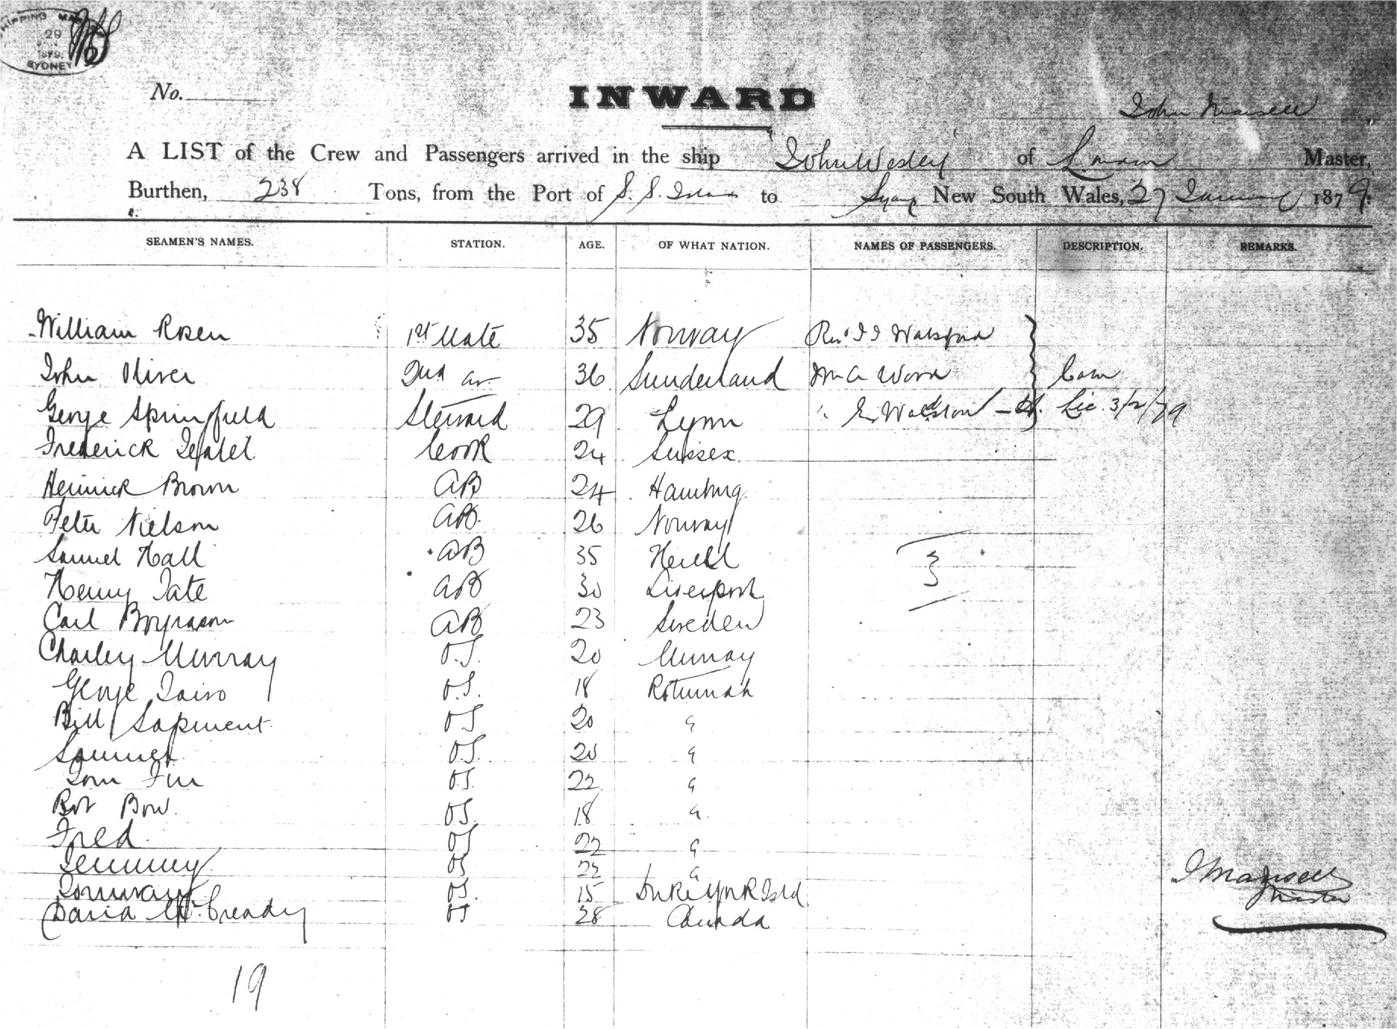 SHIPPING MA
29
1879
SYDNEY
No.
INWARD
John Mansell
A LIST of the Crew and Passengers arrived in the ship John Wesley of London Master,
Burthen, 238 Tons, from the Port of S. S. Islands to Sydney New South Wales, 27 January 1879.
SEAMEN'S NAMES. STATION. AGE. OF WHAT NATION. NAMES OF PASSENGERS. DESCRIPTION. REMARKS.
William Rosen 1st Mate 35 Norway Revd J J Watsford
John Oliver 2nd do 36 Sunderland Wood
George Springfield Steward 29 Lynn 3/2/79
Frederick Cook 24 Sussex
Brown AB 24 Hamburg
Peter Nielson AB 26 Norway
Samuel Hall AB 35
Henry Tate AB 30 Liverpool
Carl AB 23 Sweden
Charley Murray O.S. 20 Murray
George O.S. 18 Rotumah
Bill OS 20 "
Samuel OS 20 "
Tom OS 22 "
Bob Bow OS 18 "
Fred OS 22 "
Jemmey OS 22 "
OS 15 Duke Ynk Isld
David McCready OS 28 Canada
J Mansell
Master
19